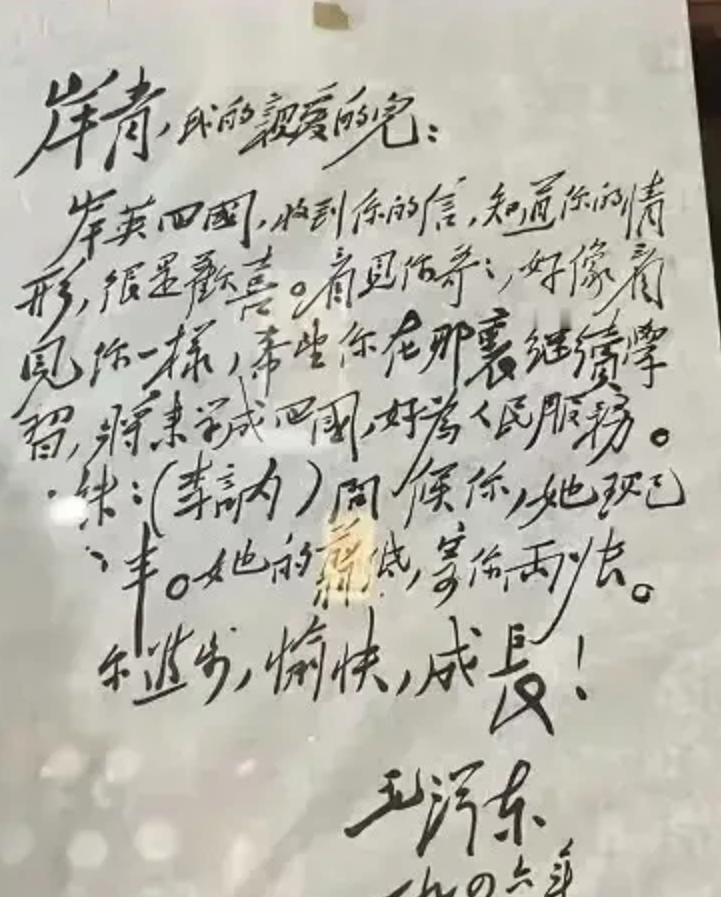 岸青,我的親爱的兒:
岸英回國,收到你的信,知道你的情
形,很是歡喜。看見你哥:,好像看
見你一樣,希望你在那裏继續學
習,將来学成回國,好為人民服務。
妹:(李訥)問候你,她現已
半。她的剪纸,寄你兩张。
你進步,愉快,成長!
毛澤东
一九四六年